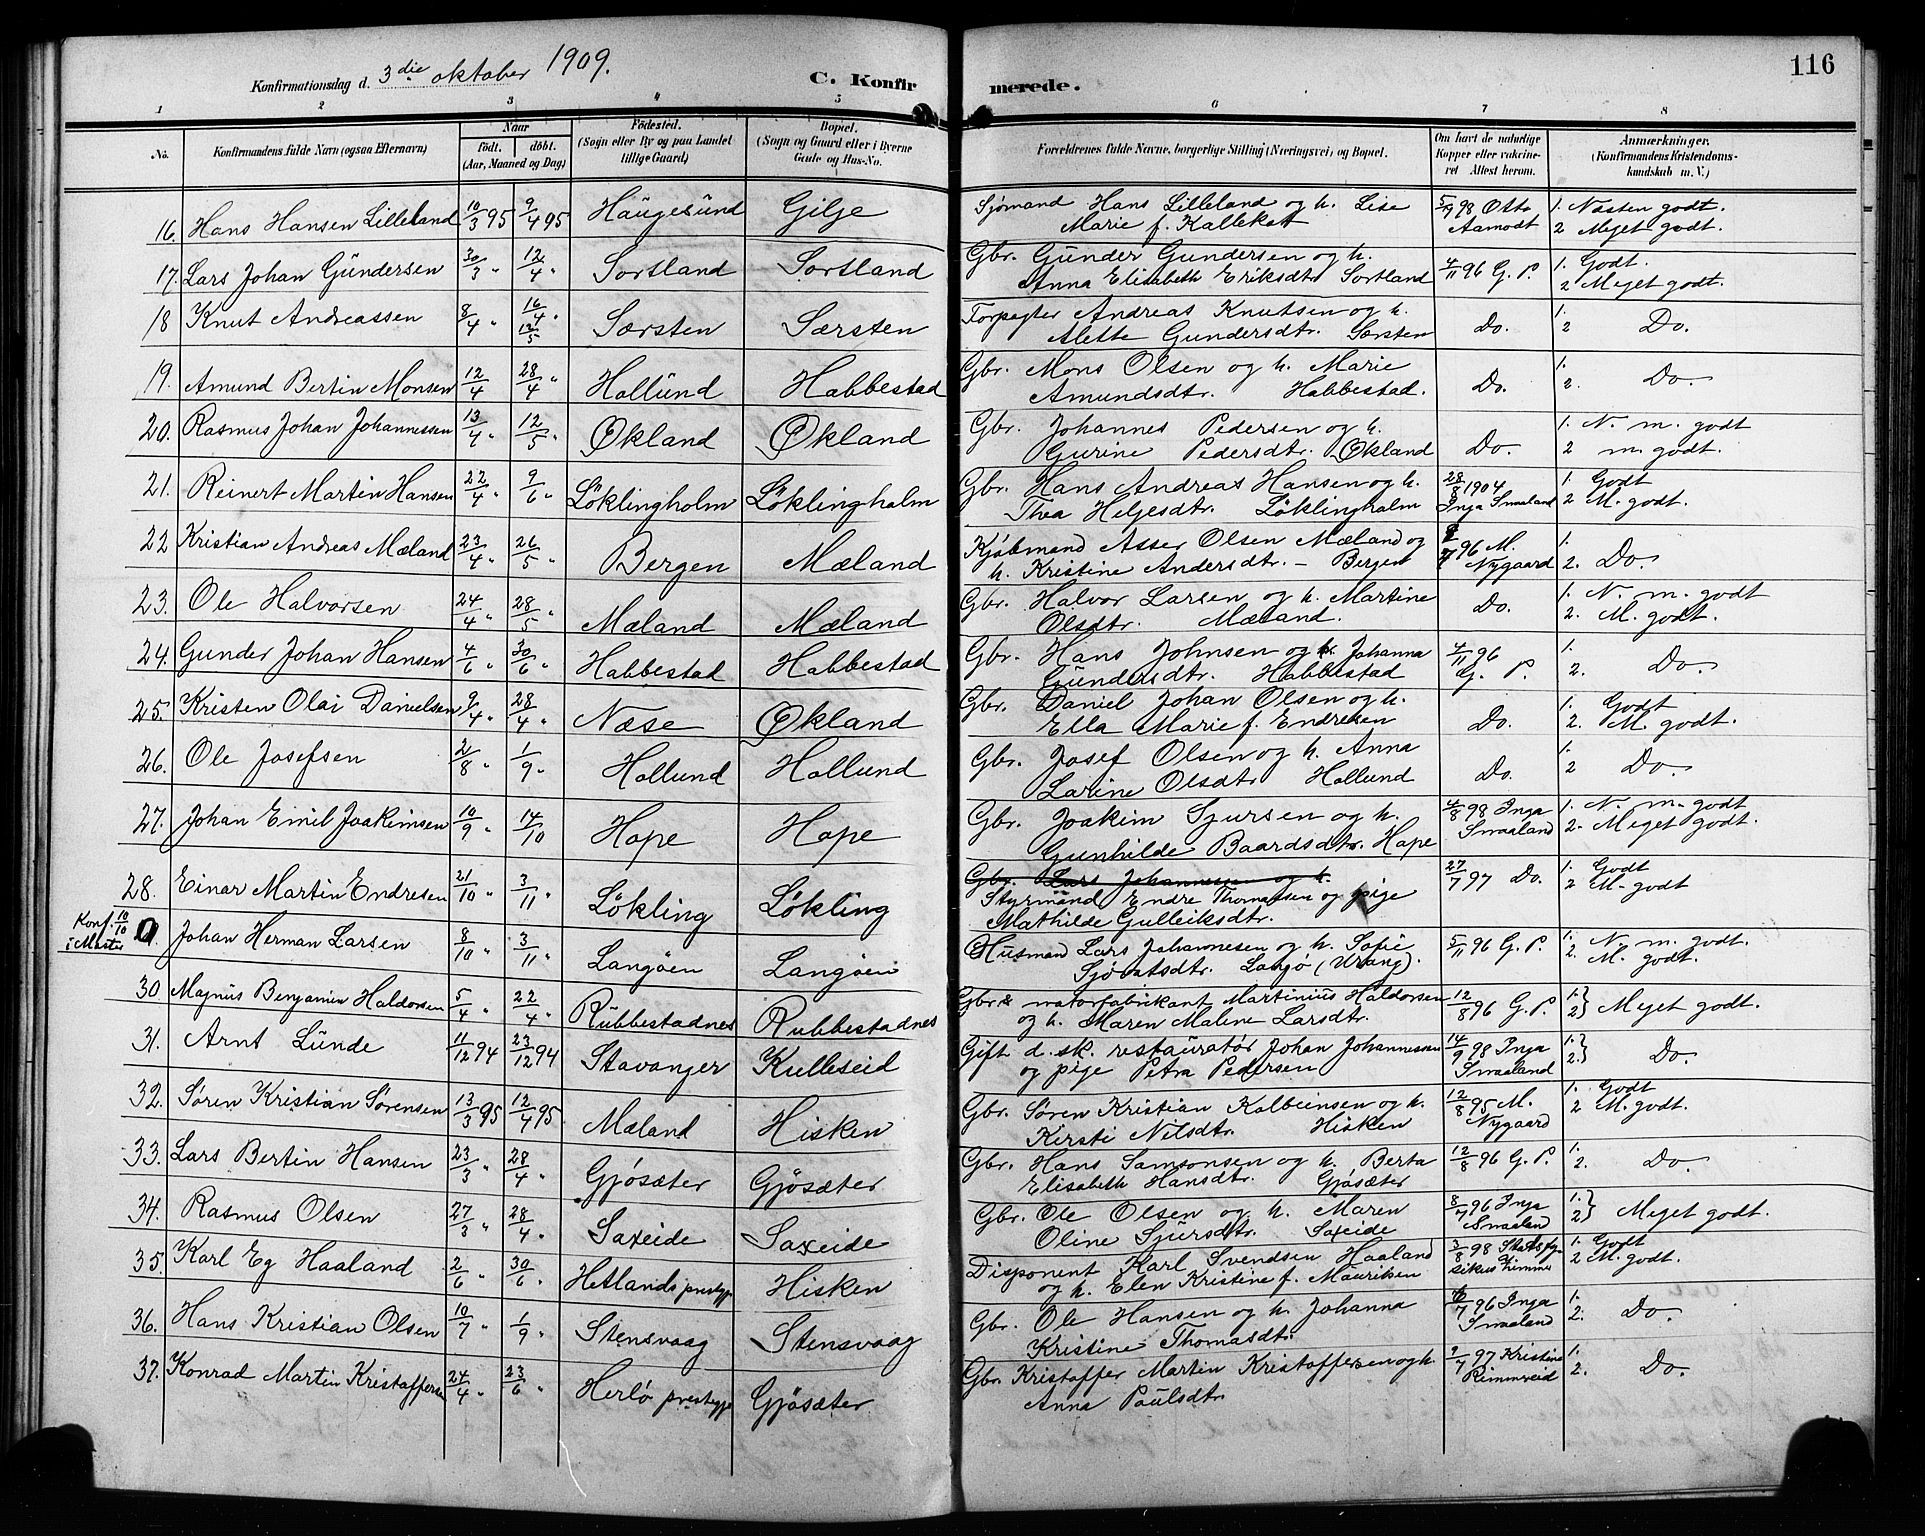 116
Konfirmationsdag d. 3die oktober 1909.
C. Konfirmerede.
1 2 3 4 5 6 7 8
No. Konfirmandens fulde Navn (ogsaa Efternavn) Naar født. døbt. (Aar, Maaned og Dag) Fødested. (Sogn eller By og paa Landet tillige Gaard) Bopæl. (Sogn og Gaard eller i Byerne Gade og Hus-No. Forældrenes fulde Navne, borgerlige Stilling (Næringsvei) og Bopæl. Om havt de naturlige Kopper eller vakcineret Attest herom. Anmærkninger. (Konfirmandens Kristendomskundskab m. V.)
16. Hans Hansen Lilleland 10/3 95 9/4 95 Haugesund Gilje Sjømand Hans Lilleland og h. Lise Marie f. Kallekott 5/9 98 Otto Aamodt 1. Næsten godt. 2 Meget godt.
17. Lars Johan Gundersen 30/3 " 12/4 " Sortland Sortland Gbr. Gunder Gundersen og h. Anna Elisabeth Eriksdtr Sortland 4/11 96 G. P. 1. Godt. 2 Meget godt.
18 Knut Andreassen 8/4 " 16/4 12/5 " Særsten Særsten Forpagter Andreas Knutsen og h. Alette Gundersdtr. Særsten Do. 1. 2 Do.
19. Amund Bertin Monsen 12/4 28/4 " Hollund Habbestad Gbr. Mons Olsen og h. Marie Amundsdtr. Habbestad. Do. 1. 2. Do.
20. Rasmus Johan Johannessen 13/4 " 12/5 " Økland Økland Gbr. Johannes Pedersen og h. Gurine Pedersdtr. Økland Do. 1. N. m. godt 2 m. godt.
21. Reinert Martin Hansen 22/4 " 9/6 " Løklingholm Løklingholm Gbr. Hans Andreas Hansen og h. Thea Heljesdtr. Løklingholm 28/8 1904 Inga Smaaland 1. Godt 2 M. godt.
22 Kristian Andreas Mæland 23/4 " 26/5 " Bergen Mæland Kjøbmand Asser Olsen Mæland og h. Kristine Andersdtr. - Bergen 96 M. Nygaard 1. 2. Do.
23. Ole Halvorsen 24/4 " 28/5 " Mæland Mæland Gbr. Halvor Larsen og h. Martine Olsdtr. Mæland. Do. 1. N. m. godt 2. M. godt.
24. Gunder Johan Hansen 4/6 " 30/6 " Habbestad Habbestad Gbr. Hans Johnsen og h. Johanna Gundersdtr. Habbestad 4/11 96 G. P. 1. 2. Do.
25. Kristen Olai Danielsen 9/4 " 28/4 " Næse Økland Gbr. Daniel Johan Olsen og h. Ella Marie f. Endresen Do. 1. Godt 2. M. godt.
26. Ole Josefsen 2/8 " 1/9 " Hollund Hollund Gbr. Josef Olsen og h. Anna Larine Olsdtr. Hollund Do. 1. 2 Do.
27. Johan Emil Joakimsen 10/9 " 14/10 Hope Hope Gbr. Joakim Sjursen og h. Gunhilde Baardsdtr. Hope 4/8 98 Inga Smaaland 1. N. m. godt 2. Meget godt.
28. Einar Martin Endresen 21/10 " 3/11 " Løkling Løkling Gbr. Lars Johannesen og h. Styrmand Endre Thomassen og pige Mathilde Gulleiksdtr. 27/7 97 Do. 1. Godt 2 M. godt
Konf. 10/10 i Møster Johan Herman Larsen 8/10 " 3/11 " Langøen Langøen Husmand Lars Johannesen og h. Sofie Sjøvatsdtr. Langø (Urang). 5/11 96 G. P. 1. N. m. godt. 2. M. godt.
30 Magnus Benjamin Haldorsen 5/4 " 22/4 " Rubbestadnes Rubbestadnes Gbr. & motorfabrikant Martinius Haldorsen og h. Maren Maline Larsdtr. 12/8 96 G. P. 1. 2. } Meget godt.
31. Arnt Lunde 11/12 94 23/12 94 Stavanger Kulleseid Gift d. sk. restauratør Johan Johannessen og pige Petra Pedersen 14/9 98 Inga Smaaland 1. 2. } Do.
32. Søren Kristian Sørensen 13/3 95 12/4 95 Mæland Hisken Gbr. Søren Kristian Kolbeinsen og h. Kersti Nilsdtr. Hisken 12/8 95 M. Nygaard 1. Godt 2. M. godt.
33. Lars Bertin Hansen 23/3 " 28/4 " Gjøsæter Gjøsæter Gbr. Hans Samsonsen og h. Berta Elisabeth Hansdtr. Gjøsæter 12/8 96 G. P. 1. 2. Do.
34. Rasmus Olsen 27/3 " 28/4 " Saxeide Saxeide Gbr. Ole Olsen og h. Maren Oline Sjursdtr. Saxeide 8/7 96 Inga Smaaland 1. 2 } Meget godt.
35. Karl Eg Haaland 2/6 " 30/6 " Hetlands prestegj. Hisken Disponent Karl Svendsen Haaland og h. Elen Kristine f. Mauritzen 3/8 98 Statsfysikus Kimme 1. Godt 2 M. godt.
36. Hans Kristian Olsen 10/7 " 1/9 " Stensvaag Stensvaag Gbr. Ole Hansen og h. Johanna Kristine Thomasdtr. 96 Inga Smaaland 1. 2. Do.
37. Konrad Martin Kristoffersen 24/4 " 23/6 " Herlø prestegj. Gjøsæter Gbr. Kristoffer Martin Kristoffersen og h. Anna Paulsdtr. 9/7 97 Kristine Rimmereid 1. 2. Do.